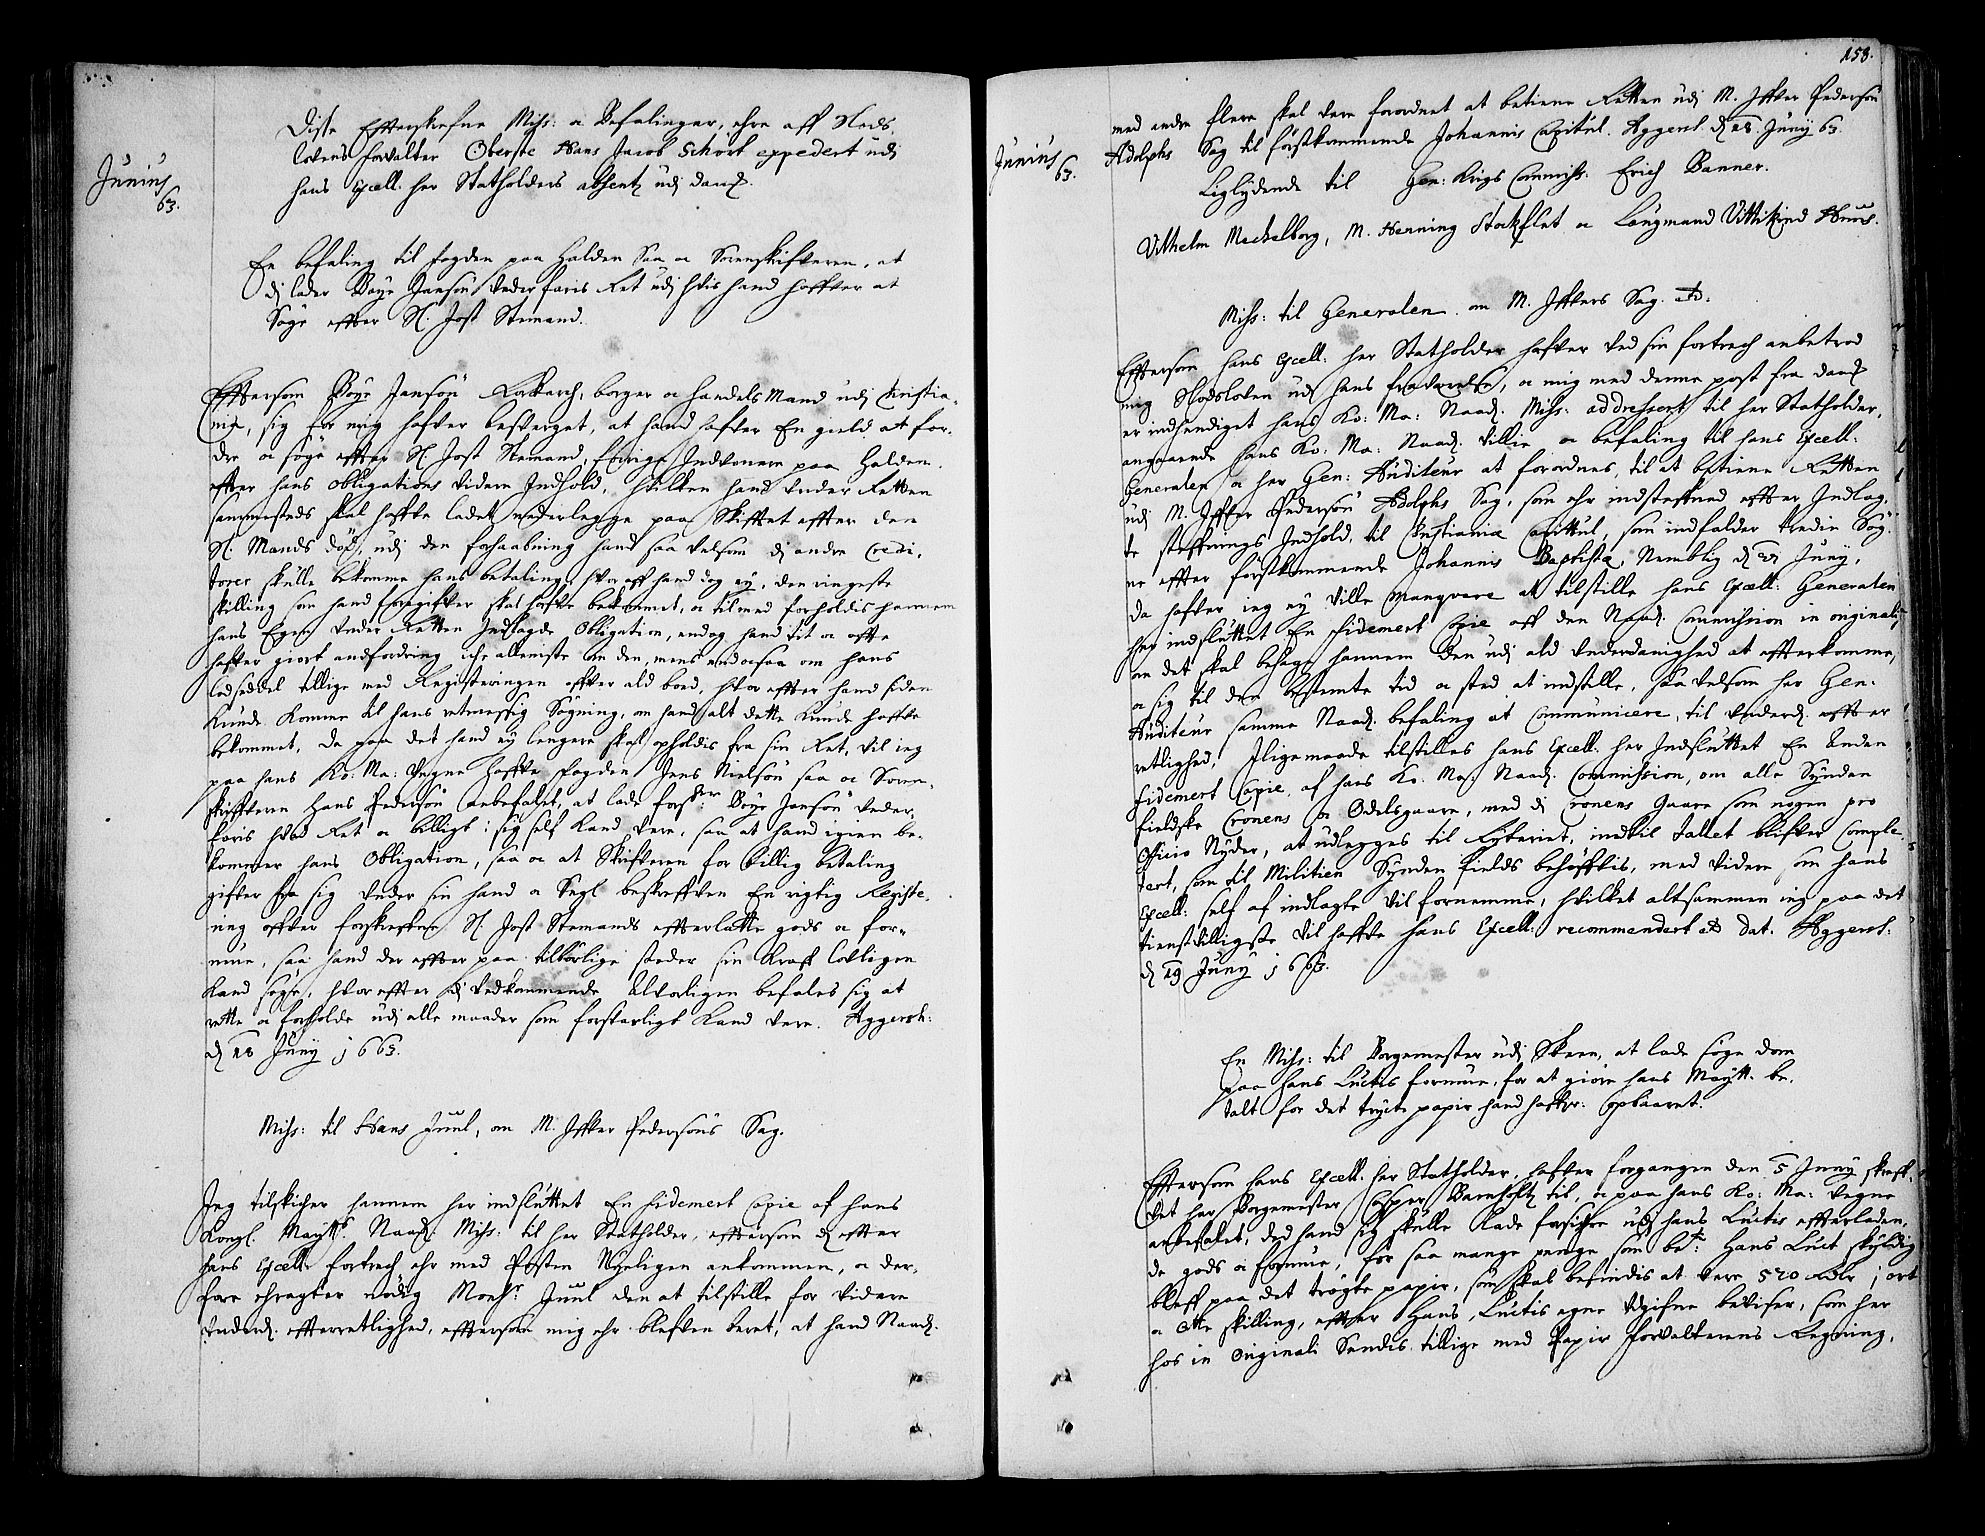 Junius
63.
Disse Effterskrefne Miss: oc Befalinger, ehre aff Slods,
lovens forvalter Oberste Hans Jacob Schort expedert udj
hans Excell: her Statholders absentz udj Danm:
En befaling til fogden paa Halden Saa oc Sorenskrifveren, at
dj lader Boye Jansøn vederfaris Ret udj hvis hand haffver at
Søge effter Sl: Jost Stemand.
Efftersom Boye Jansøn, borger oc handels Mand udj Christia,
nia, sig for mig hafver besverget, at hand hafver En gield at for,
dre oc søge effter Sl: Jost Stemand, forige Indvonere paa Halden,
effter hans obligations videre Indhold, hvilken hand under Retten
sammesteds skal haffve ladet nederlegge paa Skifftet effter den
Sl: Mands død, udj den forhaabning hand saa velsom dj andre Credi,
torer skulle bekomme hans betaling, hvor aff hand dog ey, den ringeste
skilling som hand foregifver skal hafve bekommet, oc tilmed forholdis hannem
hans Egen under Retten Indlagde Obligation, endog hand tit oc offte
hafver giort andfordring iche alleniste om den, mens endocsaa om hans
lodseddel tillige med Registeringen offver ald boed, hvor effter hand siden
kunde komme til hans retmessig Søgning, om hand alt dette kunde haffve
bekommet, da paa det hand ey lengere skal opholdis fra sin Ret, vil ieg
paa hans Ko: Ma: vegne haffve fogden Jens Nielsøn saa oc Soren,
skriffveren Hans Pedersøn anbefalet, at lade forschr: Boye Jansøn veder,
faris hvad Ret oc billigt i sig self kand vere, saa at hand igien be,
kommer hans Obligation, saa oc at Skrifveren for billig betaling
gifver fra sig under sin hand oc Segl beskreffven En rigtig Registe,
ring offver forskreffne Sl: Jost Stemands effterlatte gods oc for,
mue, saa hand der effter paa tilbørlige steder sin kraff Lovligen
kand søge, hvor effter dj vedkommende alvorligen befales sig at
rette oc forholde udj alle maader som forsvarligt kand vere. Aggersh:
d 18 Juny 1663.
Miss: til Hans Juul, om M. Iffver Pedersøns Sag.
Jeg tilskicher hannem her indsluttet En fidemert Copie af hans
Kongl. Maytts. Naad: Miss: til her Statholder, efftersom d effter
hans Excell: fortrech ehr med Posten Nyeligen ankommen, oc der,
fore eragter nødig Monsr. Juul den at tilstille for videre
Underd: effterretlighed, efftersom mig ehr blefven beret, at hand Naad:
158.
Junius
63.
med andre flere skal vere forordnet at betiene Retten udj M. Iffver Pedersøn
Adolphs Sag til førstkommende Johannis Capitul. Aggersh. d 18. Juny 63.
Liglydende til Gen: Krigs Commiss: Erich Banner.
Vilhelm Mechelborg, M. Henning Stockflet oc Laugmand Vittikind Huus.
Miss: til Generalen om M. Iffvers Sag etc:
Efftersom hans Excell: her Statholder hafver ved sin fortrech anbetrod
mig Slodsloven udj hans fraværelse, oc mig med denne post fra Danm:
er indhendiget hans Ko: Ma: Naad: Miss: addressert til her Statholder,
angaaende hans Ko: Ma: Naad: villie oc befaling til hans Excell:
Generalen oc her Gen: Auditeur at forordnes til at betiene Retten
udj M. Iffver Pedersøn Adolphs Sag, som ehr indsteffned effter Indlag,
te steffnings Indhold, til Christiania Capittul, som indfalder tredie Søg,
ne effter førstkommende Johannis Baptistæ, Nemblig d Juny,
da hafver ieg ey ville manqvere at tilstille hans Excell: Generalen
her indsluttet En fidemert Copie aff den Naad: Commission in originali,
om det skal behage hannem den udj ald underdanighed at effterkomme,
oc sig til den bestemte tid oc sted at indstille, saa velsom her Gen:
Auditeur samme Naad: befaling at Communicere, til underd: effter
retlighed, Iligemaade tilstilles hans Excell: her Indsluttet En anden
fidemert Copie, af hans Ko. Ma. Naad: Commission, om alle Synden
fieldske Cronens oc Odelsgaare, med dj Cronens gaare som nogen pro
Officio Nyder, at udlegges til Rytteriet, indtil tallet blifver Comple,
tert, som til Militien Synden fields behøffvis, med videre som hans
Excell: self af indlagte vil fornemme, hvilket altsammen ieg paa det
tienstvilligste vil haffve hans Excell: recommendert etc Dat. Aggersh:
d 19 Juny 1663.
En Miss: til Borgemester udj Skeen, at lade søge dom
paa Hans Luctis formue, for at giøre hans Maytt. be,
talt for det tryete papir hand haffver opbaaret.
Efftersom hans Excell: her Statholder, hafver forgangen den 5 Juny skreff,
vet her Borgemester Casper Barnholtz til, oc paa hans Ko: Ma: vegne
anbefalet, ved hand sig skulle lade forsichre udj hans Luctis effterladen,
de gods oc formue, for saa mange penge som bete: Hans Luct skyldig
bleff paa det trøgte papir, som skal befindis at vere 520 Rdlr 1 ort
oc otte skilling, effter Hans Luctis egne udgifne beviser, som her
hos in Originali Sendis tillige med Papir forvalterens Regning,